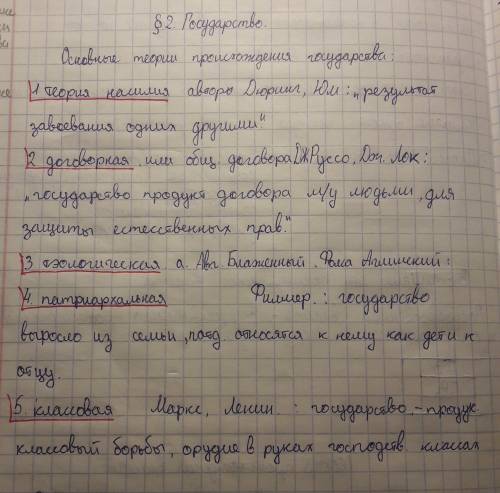 §2. Государство.
Основные теории происхождения государства:
1 теория насилия авторы Дюринг, Юм: „результат
завоевания одних другими."
2 договорная или общ. договора ДЖРуссо, Дж. Лок:
„государство продукт договора м/у людьми, для
защиты естесственных прав."
3 теологическая а. Авг. Блаженный, Фома Аквинский:
4. патриархальная Филмер.: государство
выросло из семьи, относятся к нему как дети к
отцу.
5. классовая Маркс, Ленин.: государство - продук
классовый борьбы, орудие в руках господств. классах